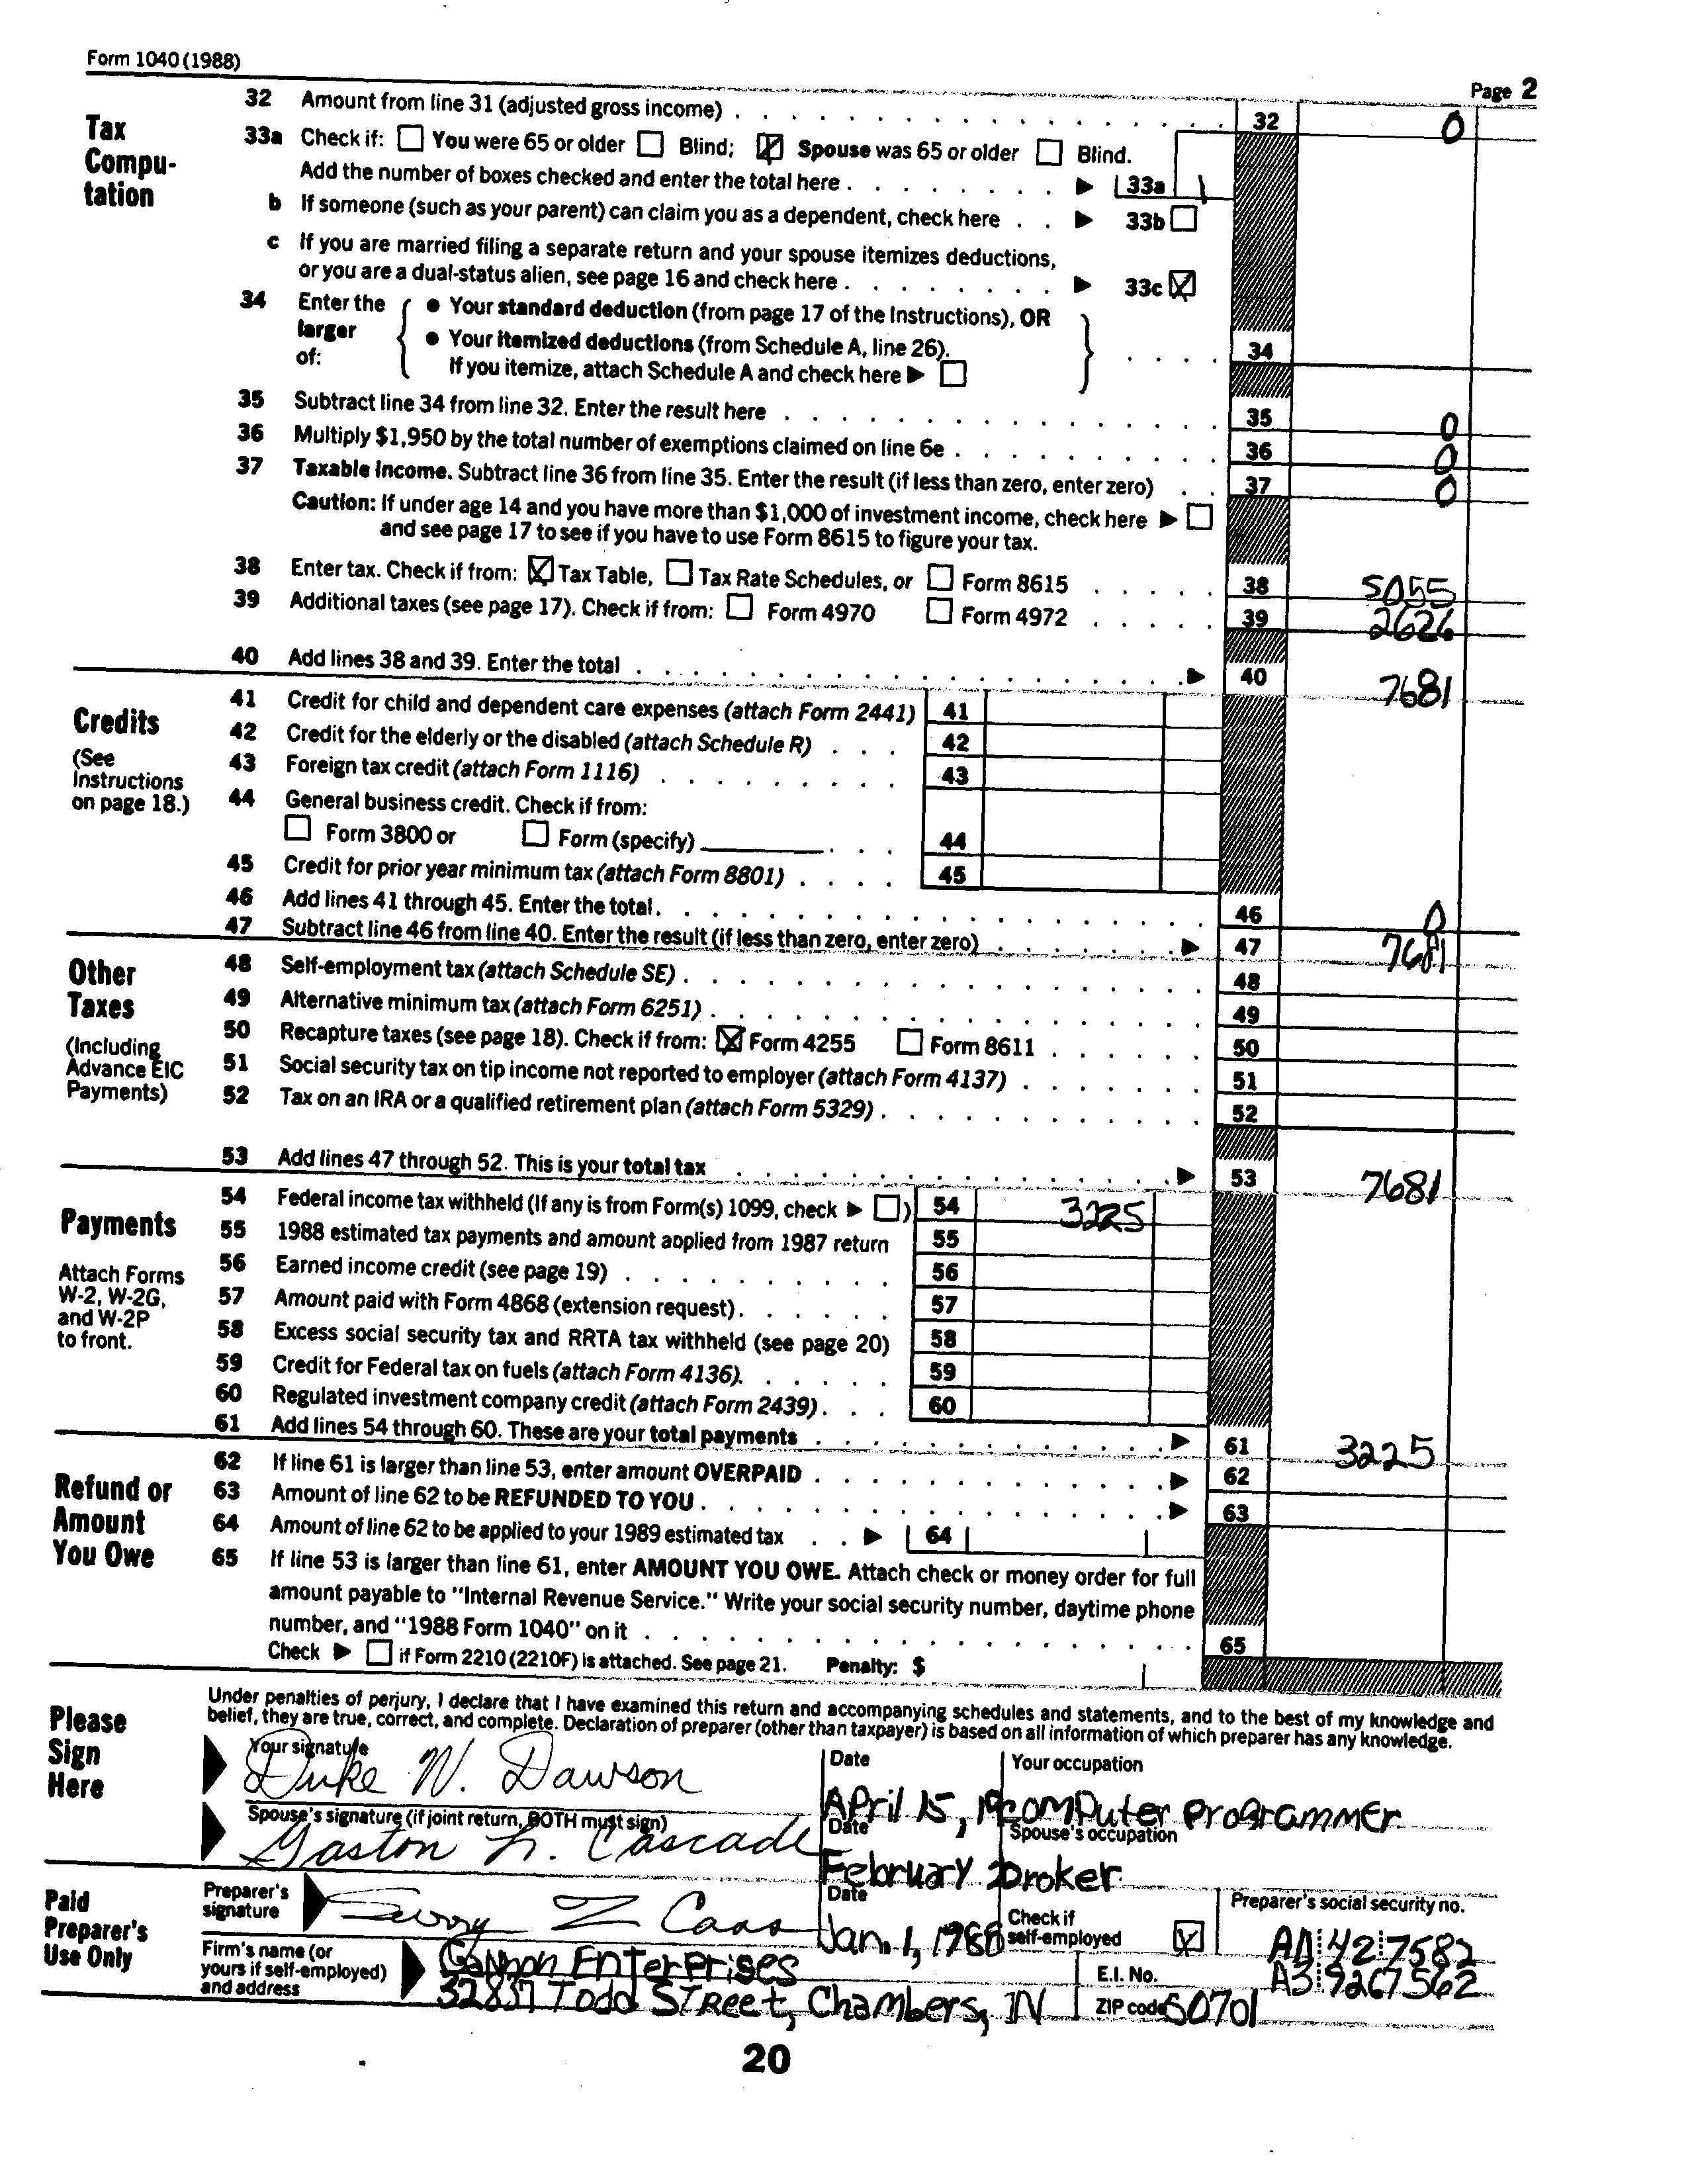 Form 1040 (1988)
Page 2
Tax Compu-tation
32 Amount from line 31 (adjusted gross income) 32 0
33a Check if: You were 65 or older Blind; Spouse was 65 or older Blind.
Add the number of boxes checked and enter the total here 33a 1
b If someone (such as your parent) can claim you as a dependent, check here 33b
c If you are married filing a separate return and your spouse itemizes deductions,
or you are a dual-status alien, see page 16 and check here 33c
34 Enter the larger of:
● Your standard deduction (from page 17 of the Instructions), OR
● Your itemized deductions (from Schedule A, line 26).
If you itemize, attach Schedule A and check here
34
35 Subtract line 34 from line 32. Enter the result here 35 0
36 Multiply $1,950 by the total number of exemptions claimed on line 6e 36 0
37 Taxable income. Subtract line 36 from line 35. Enter the result (if less than zero, enter zero) 37 0
Caution: If under age 14 and you have more than $1,000 of investment income, check here
and see page 17 to see if you have to use Form 8615 to figure your tax.
38 Enter tax. Check if from: Tax Table, Tax Rate Schedules, or Form 8615 38 5055
39 Additional taxes (see page 17). Check if from: Form 4970 Form 4972 39 2626
40 Add lines 38 and 39. Enter the total 40 7681
Credits
(See Instructions on page 18.)
41 Credit for child and dependent care expenses (attach Form 2441) 41
42 Credit for the elderly or the disabled (attach Schedule R) 42
43 Foreign tax credit (attach Form 1116) 43
44 General business credit. Check if from:
Form 3800 or Form (specify) 44
45 Credit for prior year minimum tax (attach Form 8801) 45
46 Add lines 41 through 45. Enter the total. 46 0
47 Subtract line 46 from line 40. Enter the result (if less than zero, enter zero) 47 7681
Other Taxes
(Including Advance EIC Payments)
48 Self-employment tax (attach Schedule SE) 48
49 Alternative minimum tax (attach Form 6251) 49
50 Recapture taxes (see page 18). Check if from: Form 4255 Form 8611 50
51 Social security tax on tip income not reported to employer (attach Form 4137) 51
52 Tax on an IRA or a qualified retirement plan (attach Form 5329) 52
53 Add lines 47 through 52. This is your total tax 53 7681
Payments
Attach Forms W-2, W-2G, and W-2P to front.
54 Federal income tax withheld (If any is from Form(s) 1099, check ) 54 3225
55 1988 estimated tax payments and amount applied from 1987 return 55
56 Earned income credit (see page 19) 56
57 Amount paid with Form 4868 (extension request) 57
58 Excess social security tax and RRTA tax withheld (see page 20) 58
59 Credit for Federal tax on fuels (attach Form 4136). 59
60 Regulated investment company credit (attach Form 2439) 60
61 Add lines 54 through 60. These are your total payments 61 3225
Refund or Amount You Owe
62 If line 61 is larger than line 53, enter amount OVERPAID 62
63 Amount of line 62 to be REFUNDED TO YOU 63
64 Amount of line 62 to be applied to your 1989 estimated tax 64
65 If line 53 is larger than line 61, enter AMOUNT YOU OWE. Attach check or money order for full
amount payable to "Internal Revenue Service." Write your social security number, daytime phone
number, and "1988 Form 1040" on it 65
Check if Form 2210 (2210F) is attached. See page 21. Penalty: $
Please Sign Here
Under penalties of perjury, I declare that I have examined this return and accompanying schedules and statements, and to the best of my knowledge and
belief, they are true, correct, and complete. Declaration of preparer (other than taxpayer) is based on all information of which preparer has any knowledge.
Your signature Date Your occupation
Duke W. Dawson April 15, computer programmer
Spouse's signature (if joint return, BOTH must sign) Date Spouse's occupation
Gaston L. Cascade February broker
Paid Preparer's Use Only
Preparer's signature Z Date Jan. 1, 1988 Check if self-employed Preparer's social security no.
42 7582
Firm's name (or yours if self-employed) and address
Enterprises E.I. No. A3 9267562
Todd Street, Chambers, IN ZIP code 50701
20